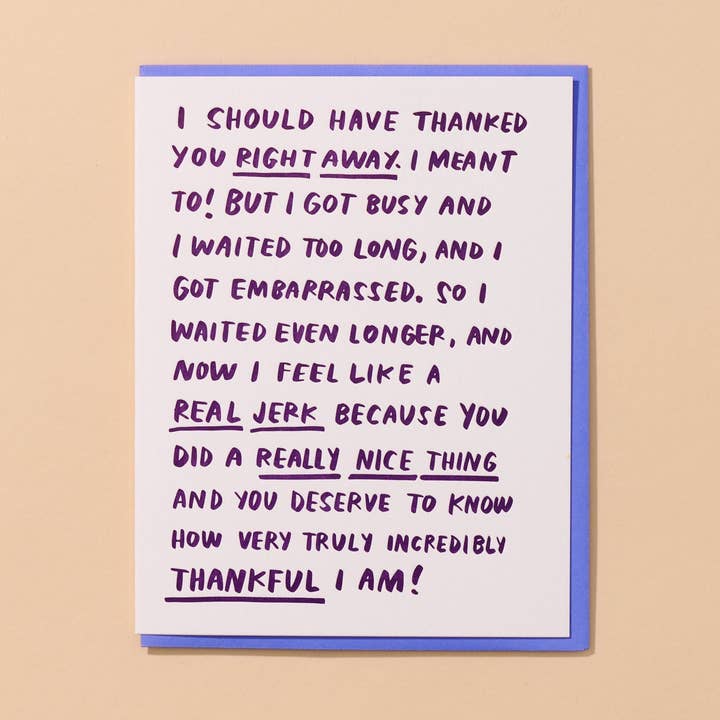 I SHOULD HAVE THANKED
YOU RIGHT AWAY. I MEANT
TO! BUT I GOT BUSY AND
I WAITED TOO LONG, AND I
GOT EMBARRASSED. SO I
WAITED EVEN LONGER, AND
NOW I FEEL LIKE A
REAL JERK BECAUSE YOU
DID A REALLY NICE THING
AND YOU DESERVE TO KNOW
HOW VERY TRULY INCREDIBLY
THANKFUL I AM!